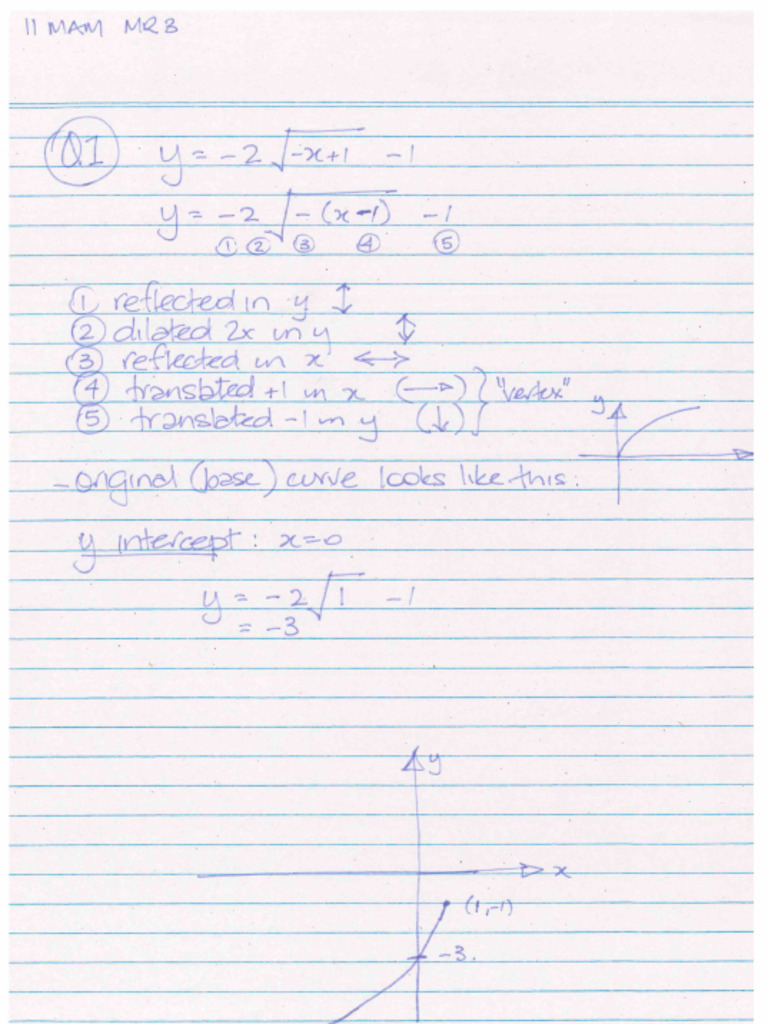 11 MAM MR B
Q1 y = -2 √-x+1 -1
y = -2 √-(x-1) -1
① ② ③ ④ ⑤
① reflected in y ↕
② dilated 2x in y ↕
③ reflected in x ↔
④ translated +1 in x (→) } "vertex"
⑤ translated -1 in y (↓)
y
- original (base) curve looks like this:
y intercept: x=0
y = -2 √1 -1
= -3
y
x
(1,-1)
-3.